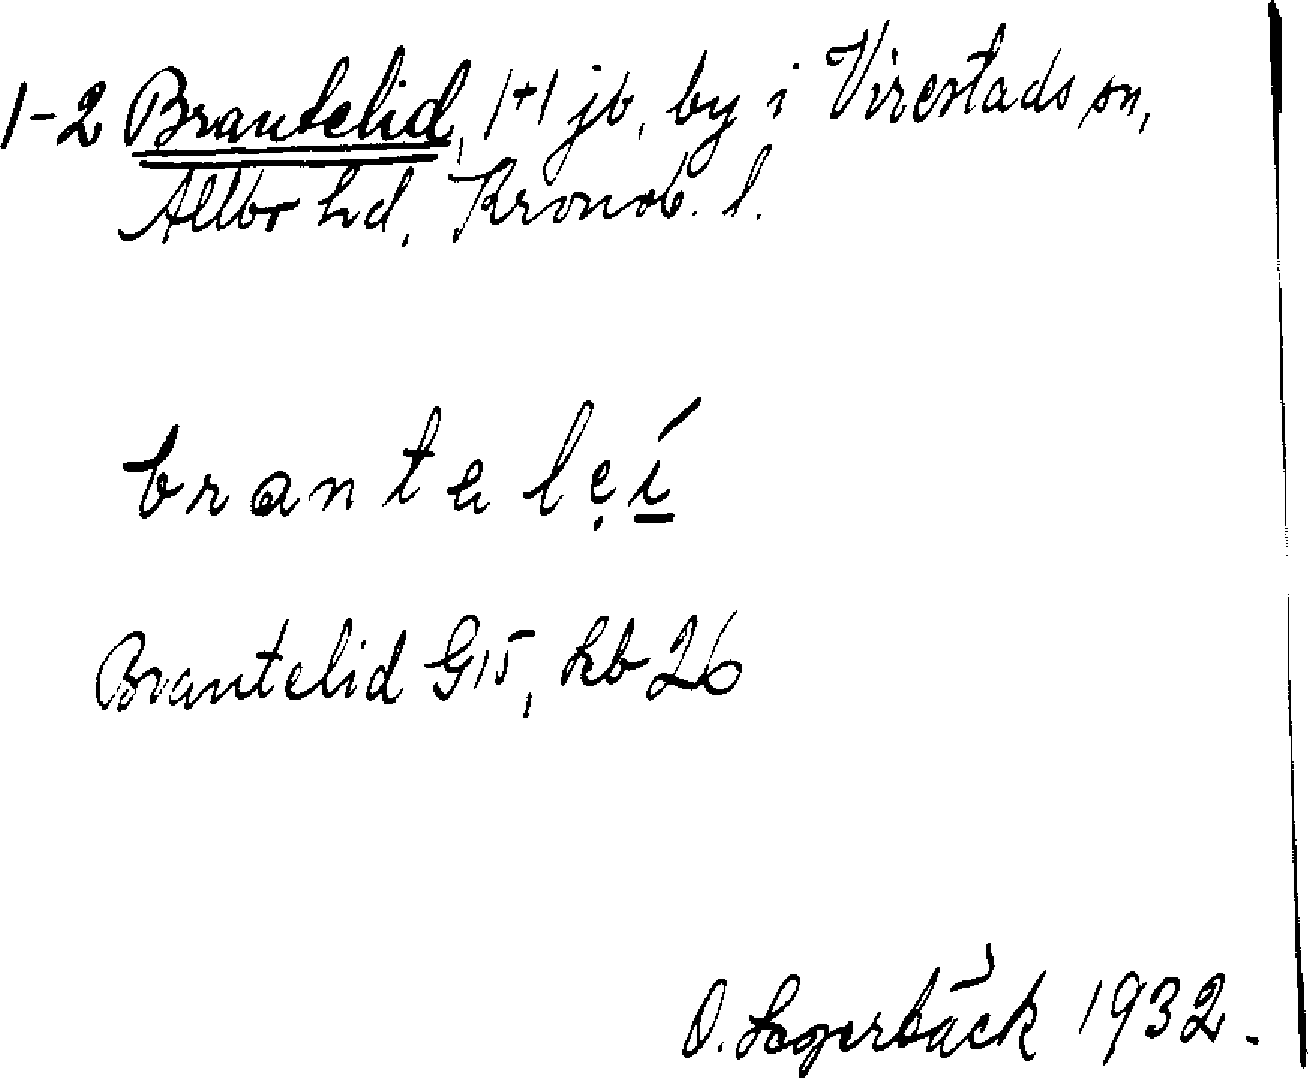 1-2 Brantelid, 1+1 jb, by i Virestads sn,
Allbo hd, Kronob. l.
brantelẹí
Brantelid G15, hb 26
O. Lagerbäck 1932.